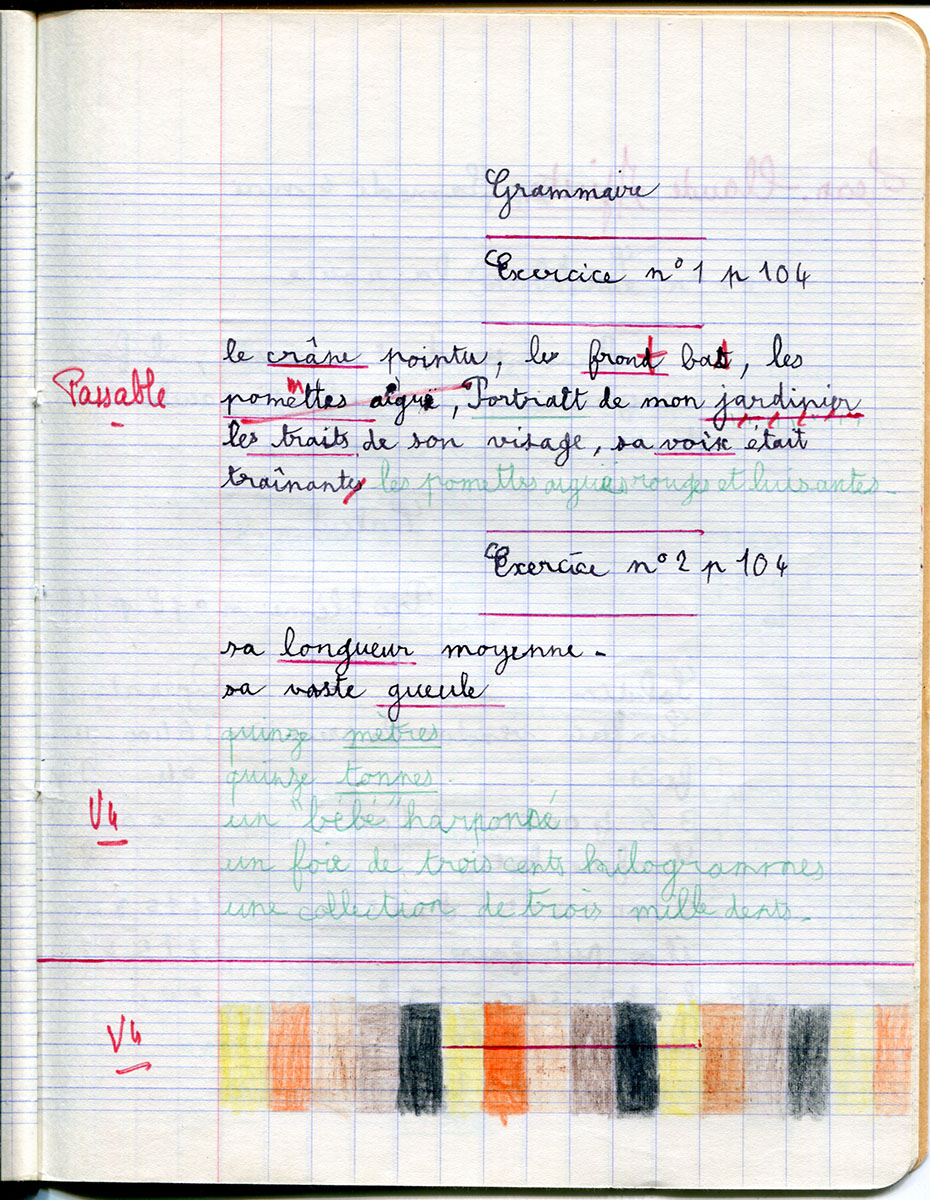 Grammaire
Exercice n° 1 p 104
le crâne pointu, le front bas, les
Passable
pomettes aiguë, Portrait de mon jardinier
les traits de son visage, sa voix était
traînante les pomettes aiguës rouges et luisantes.
Exercice n° 2 p 104
sa longueur moyenne.
sa vaste gueule
quinze mètres
quinze tonnes
Vu
un "bébé" harponné
un foie de trois cents kilogrammes
une collection de trois mille dents.
Vu